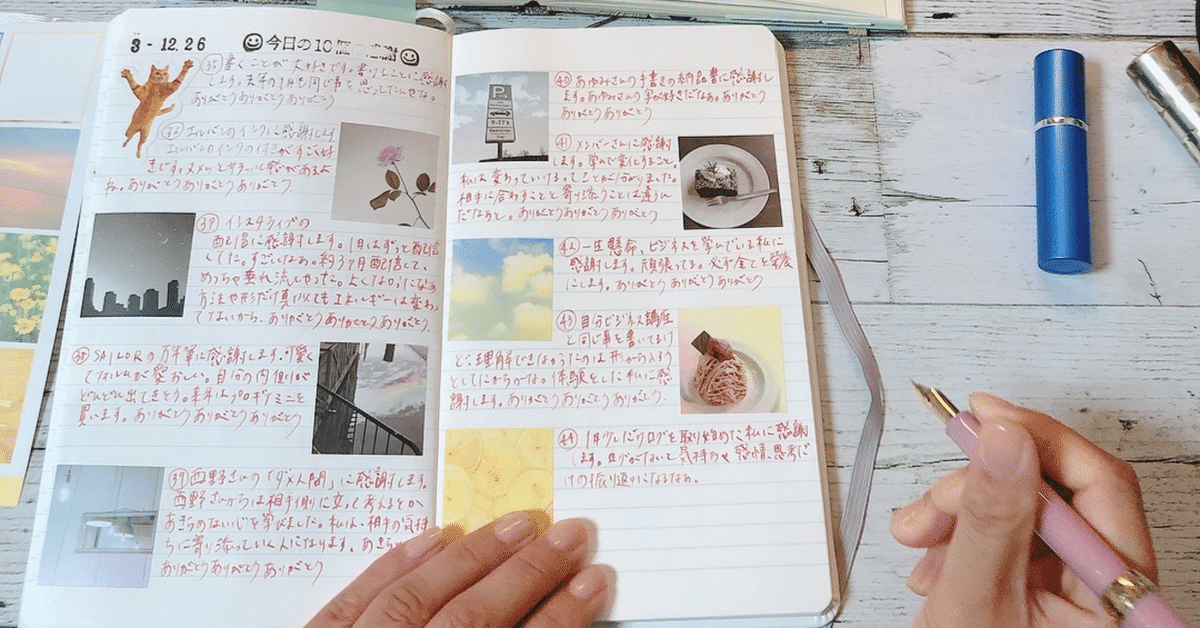 3 - 12.26
今日の10 感謝
㉟ 書くことが大好きです。書けることに感謝
します。去年の1月も同じ事を思ってたんやな。
ありがとうありがとうありがとう
㊱ エルバンのインクに感謝します
エルバンのインクの付きがすごく好
きです。
ね。ありがとうありがとうありがとう。
㊲ インスタライブの
配信に感謝します。1月はずっと配信
してた。すごいなあ。約3ヶ月配信して、
めっちゃ垂れ流しやった。よくなるようになあ
方法や形だけ真似てもエネルギーは変わっ
てないから。ありがとうありがとうありがとう
㊳ SAILORの万年筆に感謝します。可愛く
てフォルムが愛おしい。自分の内側が
どんどん出てきそう。来年はプロギミニを
買います。ありがとうありがとうありがとう
㊴ 西野さんの「ダメ人間」に感謝します。
西野さんからは相手側に立って考えるとか
あきらめない心を学びました。私は、相手の気持
ちに寄り添っていく人になります。
ありがとうありがとうありがとう
P
9-17h
㊵ あゆみさんの手書きの納品書に感謝し
ます。あゆみさんの字が好きだなあ。ありがとう
ありがとうありがとう
㊶ メンバーさんに感謝
します。学んで変化すること。
私は変わっていけるってことが分かりました。
相手に合わすことと寄り添うことは違うん
だなあと。ありがとうありがとうありがとう
㊷ 一生懸命、ビジネスを学んでいる私に
感謝します。頑張ってる。必ず全てを栄養
にします。ありがとうありがとうありがとう
㊸ 自分ビジネス講座
と同じ事を書いてるけ
ど、理解できなかったのは形から入ろう
としてたからかな。体験をした私に感
謝します。ありがとうありがとうありがとう.
㊹ 1年少しだけログを取り始めた私に感謝
します。ログがないと気持ちや感情、思考だ
けの振り返りになるなあ。